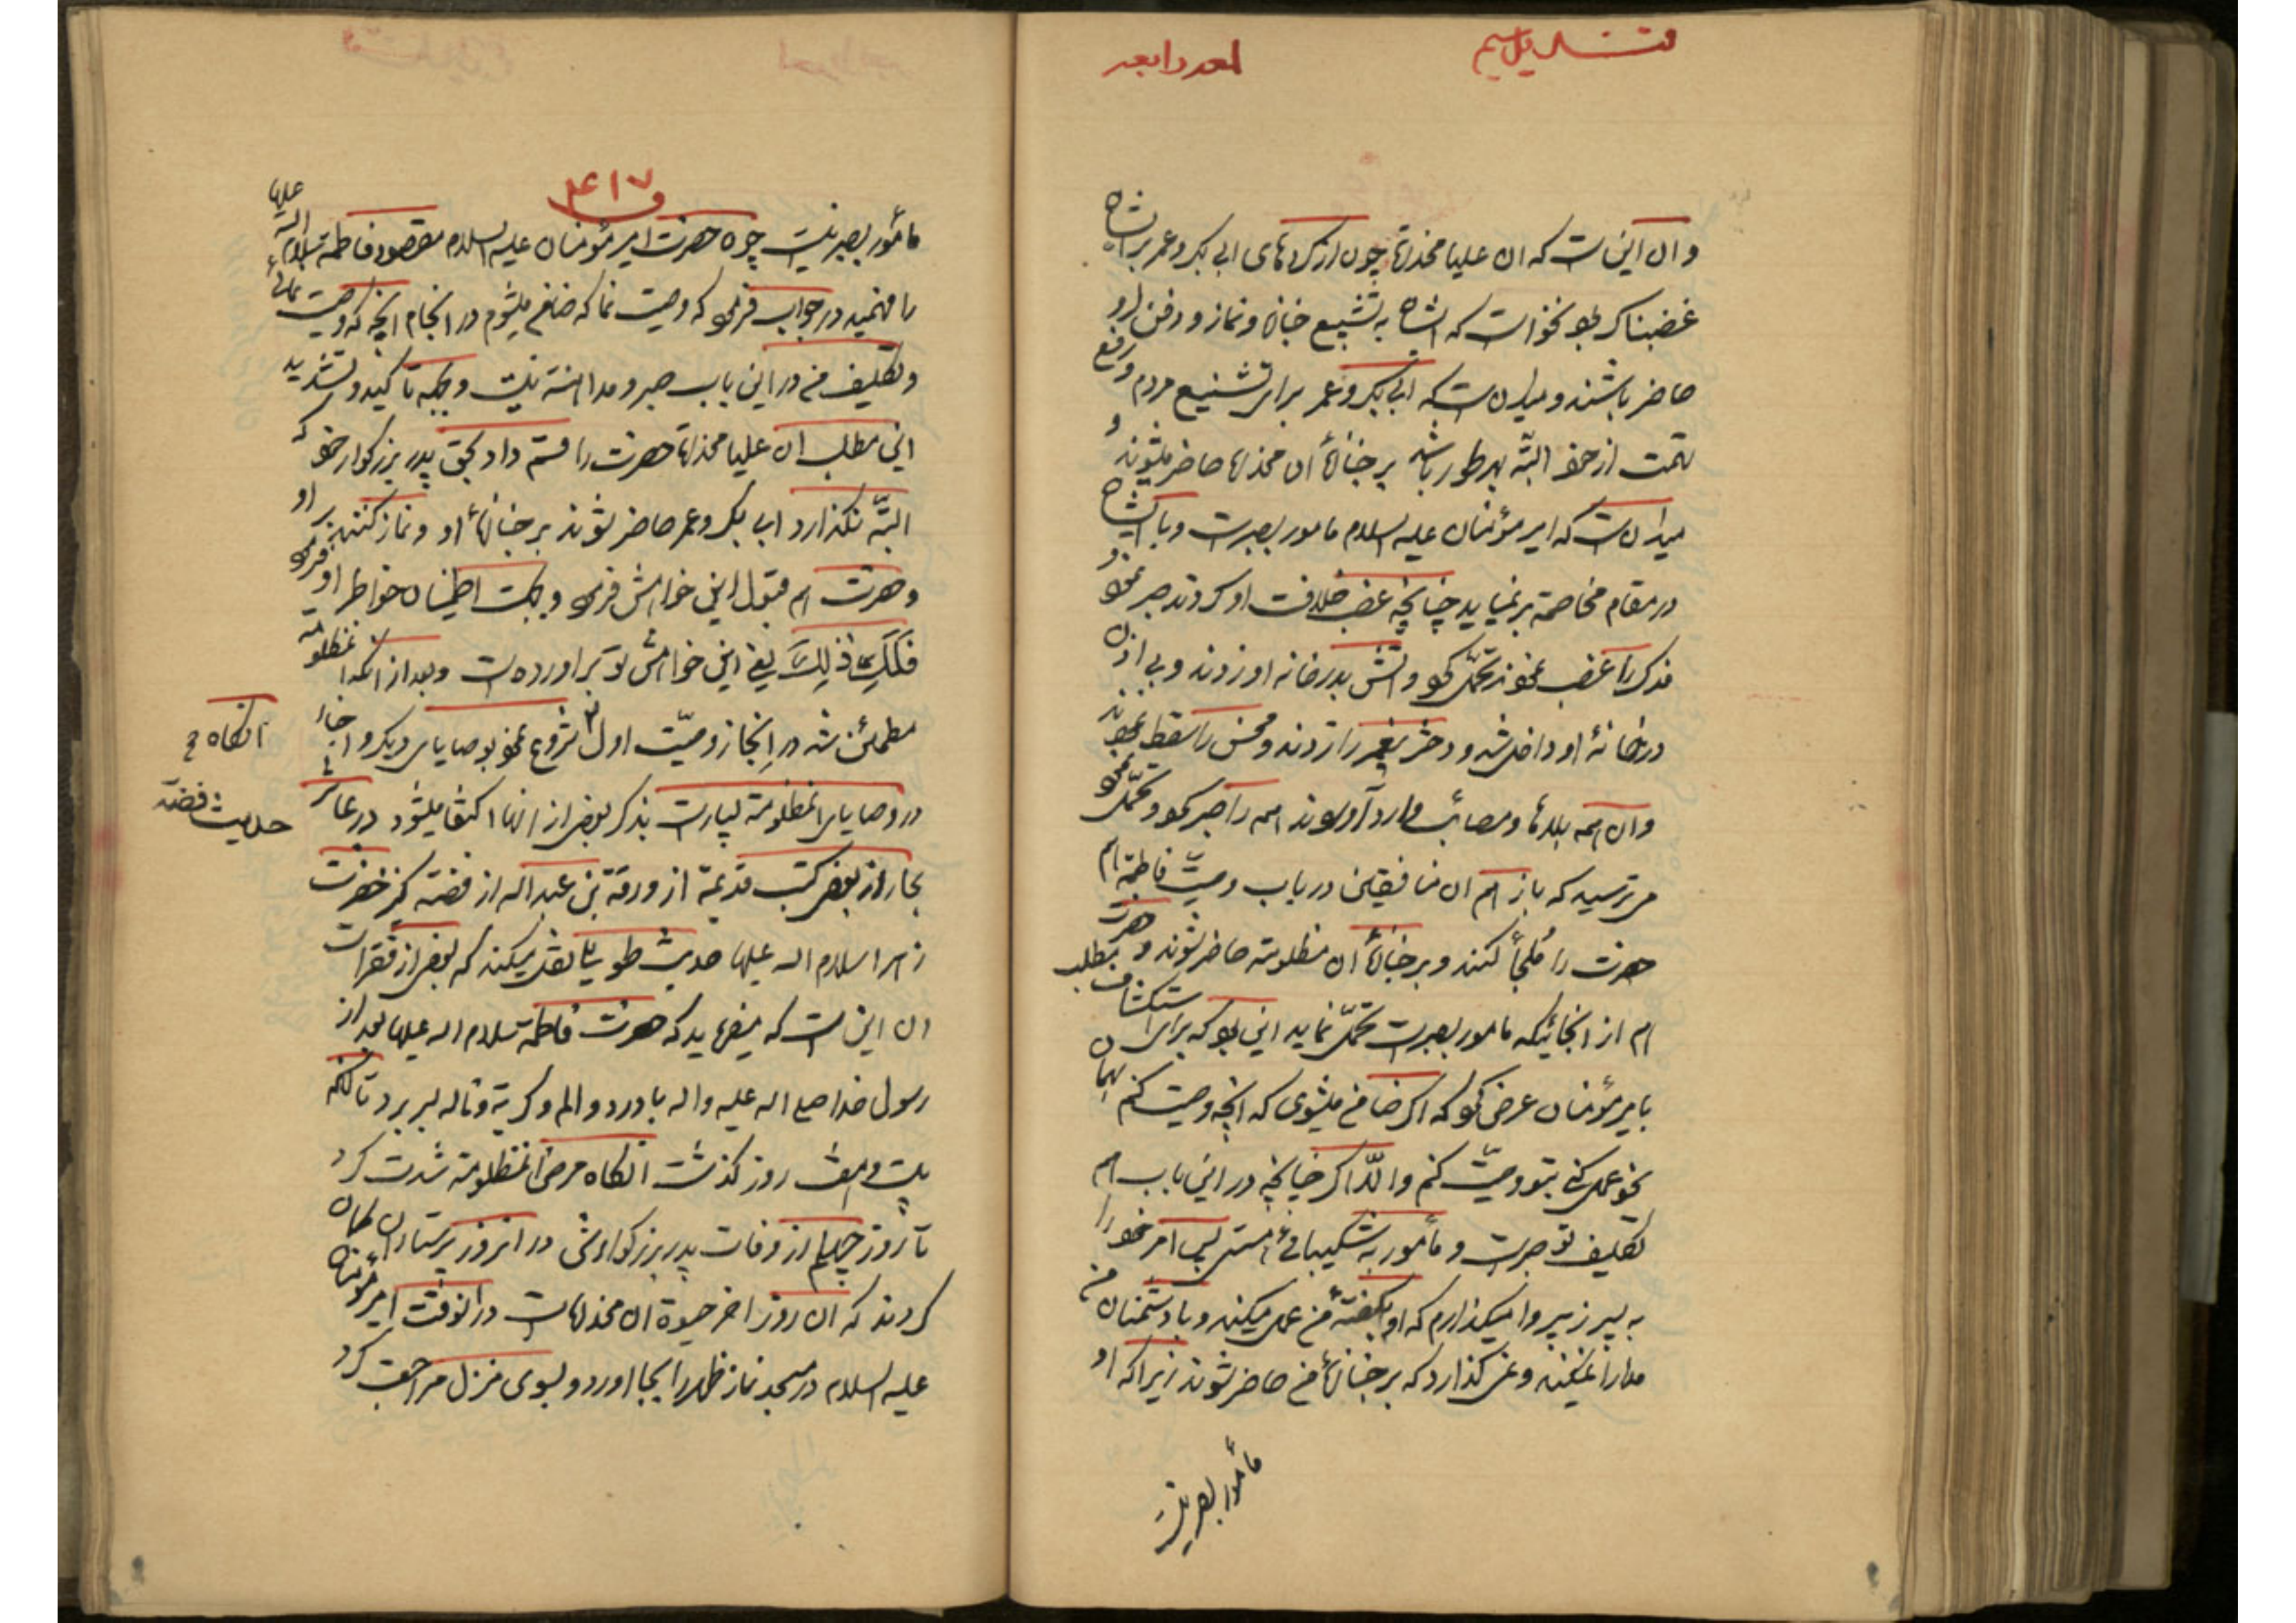 لمعه رابعه
وان این است که ان علیا مخدره چون از کرده‌های ابی بکر و عمر بر ایشان
غضبناک بود نخواست که ایشان به تشییع جنازه و نماز و دفن او
حاضر باشند و میدانست که ابی بکر و عمر برای تشنیع مردم و رفع
تهمت از خود البتّه بهر طور باشد بر جنازهٔ ان مخدره حاضر میشوند و
میدانست که امیر مؤمنان علیه السلام مامور بصبر است و با ایشان
در مقام مخاصمة بر نمیاید چنانچه غصب خلافت او کردند صبر نمود و
فدک را غصب نمودند تحمّل نمود و اتش بدر خانه او زدند و بی اذن
در خانهٔ او داخل شدند و دختر پیغمبر را زدند و محسن را سقط نمودند
وان همه بلاها و مصائب وارد آوردند همه را صبر نمود و تحمّل نمود
می ترسید که باز هم ان منافقین در باب وصیّت فاطمه هم
حضرت را مُلجأ کنند و بر جنازهٔ ان مظلومه حاضر شوند و حضرت
هم از انجائیکه مامور بصبر است تحمّل نماید این بود که برای استکشاف مطلب
بامیر مؤمنان عرض نمود که اگر ضامن میشوی که انچه وصیت کنم بهمان
نحو عمل کنی بتو وصیّت کنم والّا اگر چنانچه در این باب هم
تکلیف تو صبر است و مأمور به شکیبائی هستی پس امر خود را
به پسر زبیر وا میگذارم که او بگفتهٔ من عمل میکند و با دشمنان من
مدارا نمیکند و نمی گذارد که بر جنازهٔ من حاضر شوند زیرا که او
مأمور بصبر نیست
۴۱۷
مأمور بصبر نیست چون حضرت امیر مؤمنان علیه السلام مقصود فاطمه سلام الله علیها
را فهمید در جواب فرمود که وصیت نما که ضامن میشوم در انجام انچه که وصیت نمائی
و تکلیف من در این باب صبر و مداهنة نیست و بجهة تاکید و تشدید
این مطلب ان علیا مخدره حضرت را قسم داد بحق پدر بزرگوار خود که
البتّه نگذارد ابی بکر و عمر حاضر شوند بر جنازهٔ او و نماز کنند بر او
و حضرت هم قبول این خواهش فرمود و بجهت اطمینان خواطر او فرمود
فَلَکِ ذٰلِکَ یعنی این خواهش تو بر اورده است و بعد از انکه انمظلومه
مطمئن شد در اِنجاز وصیّت اول شروع نمود بوصایای دیگر و اخبار
در وصایای انمظلومة بسیار است بذکر بعضی از انها اکتفا میشود در عاشر
بحار از بعض کتب قدیمة از ورقة بن عبد اله از فضه کنیز حضرت
زهرا سلام اله علیها حدیث طویلی نقل میکند که بعضی از فقرات
ان این است که میفرماید که حضرت فاطمة سلام اله علیها بعد از
رسول خدا صلی اله علیه واله با درد و الم و گریة و ناله بسر برد تا انکه
بیست و هفت روز گذشت انگاه مرض انمظلومة شدت کرد
تا روز چهلم از وفات پدر بزرگوارش در انروز پرستاران گمان
کردند که ان روز اخر حیوة ان مخدره است در انوقت امیر مؤمنان
علیه السلام در مسجد نماز ظهر را بجا اورد و بسوی منزل مراجعت کرد
حدیث فضّه